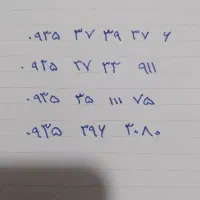 ۰۹۳۵ ۳۷ ۳۹ ۳۷ ۶
۰۹۳۵ ۳۷ ۳۳ ۹۱۱
۰۹۳۵ ۳۵ ۱۱۱ ۷۵
۰۹۳۵ ۳۹۶ ۳۰۸۰